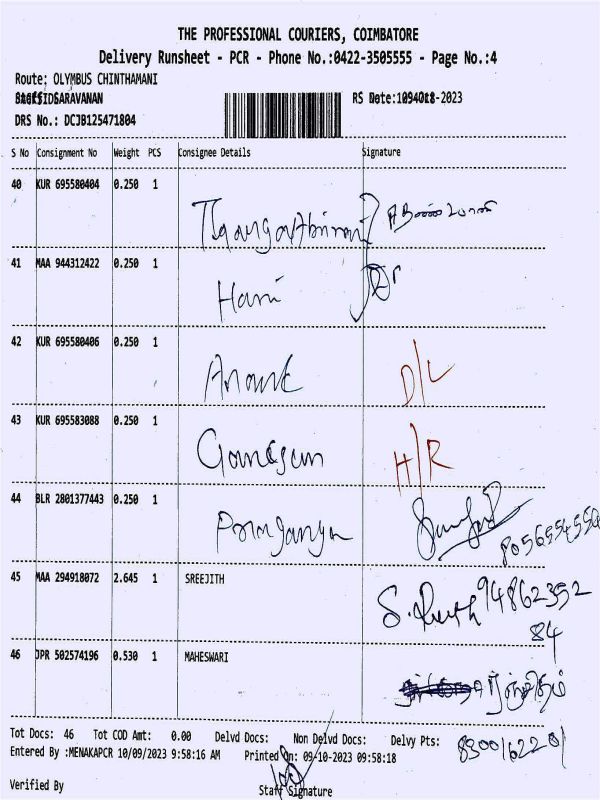 THE PROFESSIONAL COURIERS, COIMBATORE
Delivery Runsheet - PCR - Phone No.:0422-3505555 - Page No.:4
Route: OLYMBUS CHINTHAMANI
SARAVANAN RS Date: -2023
DRS No.: DCJB125471804
S No Consignment No Weight PCS Consignee Details Signature
40 KUR 695580404 0.250 1
41 MAA 944312422 0.250 1
Hari
42 KUR 695580406 0.250 1
Anand D/L
43 KUR 695583088 0.250 1
Ganesan H/R
44 BLR 2801377443 0.250 1
45 MAA 294918072 2.645 1 SREEJITH
94862352
84
46 JPR 502574196 0.530 1 MAHESWARI
Tot Docs: 46 Tot COD Amt: 0.00 Delvd Docs: Non Delvd Docs: Delvy Pts:
8300162201
Entered By :MENAKAPCR 10/09/2023 9:58:16 AM Printed On: 09-10-2023 09:58:18
Verified By Staff Signature